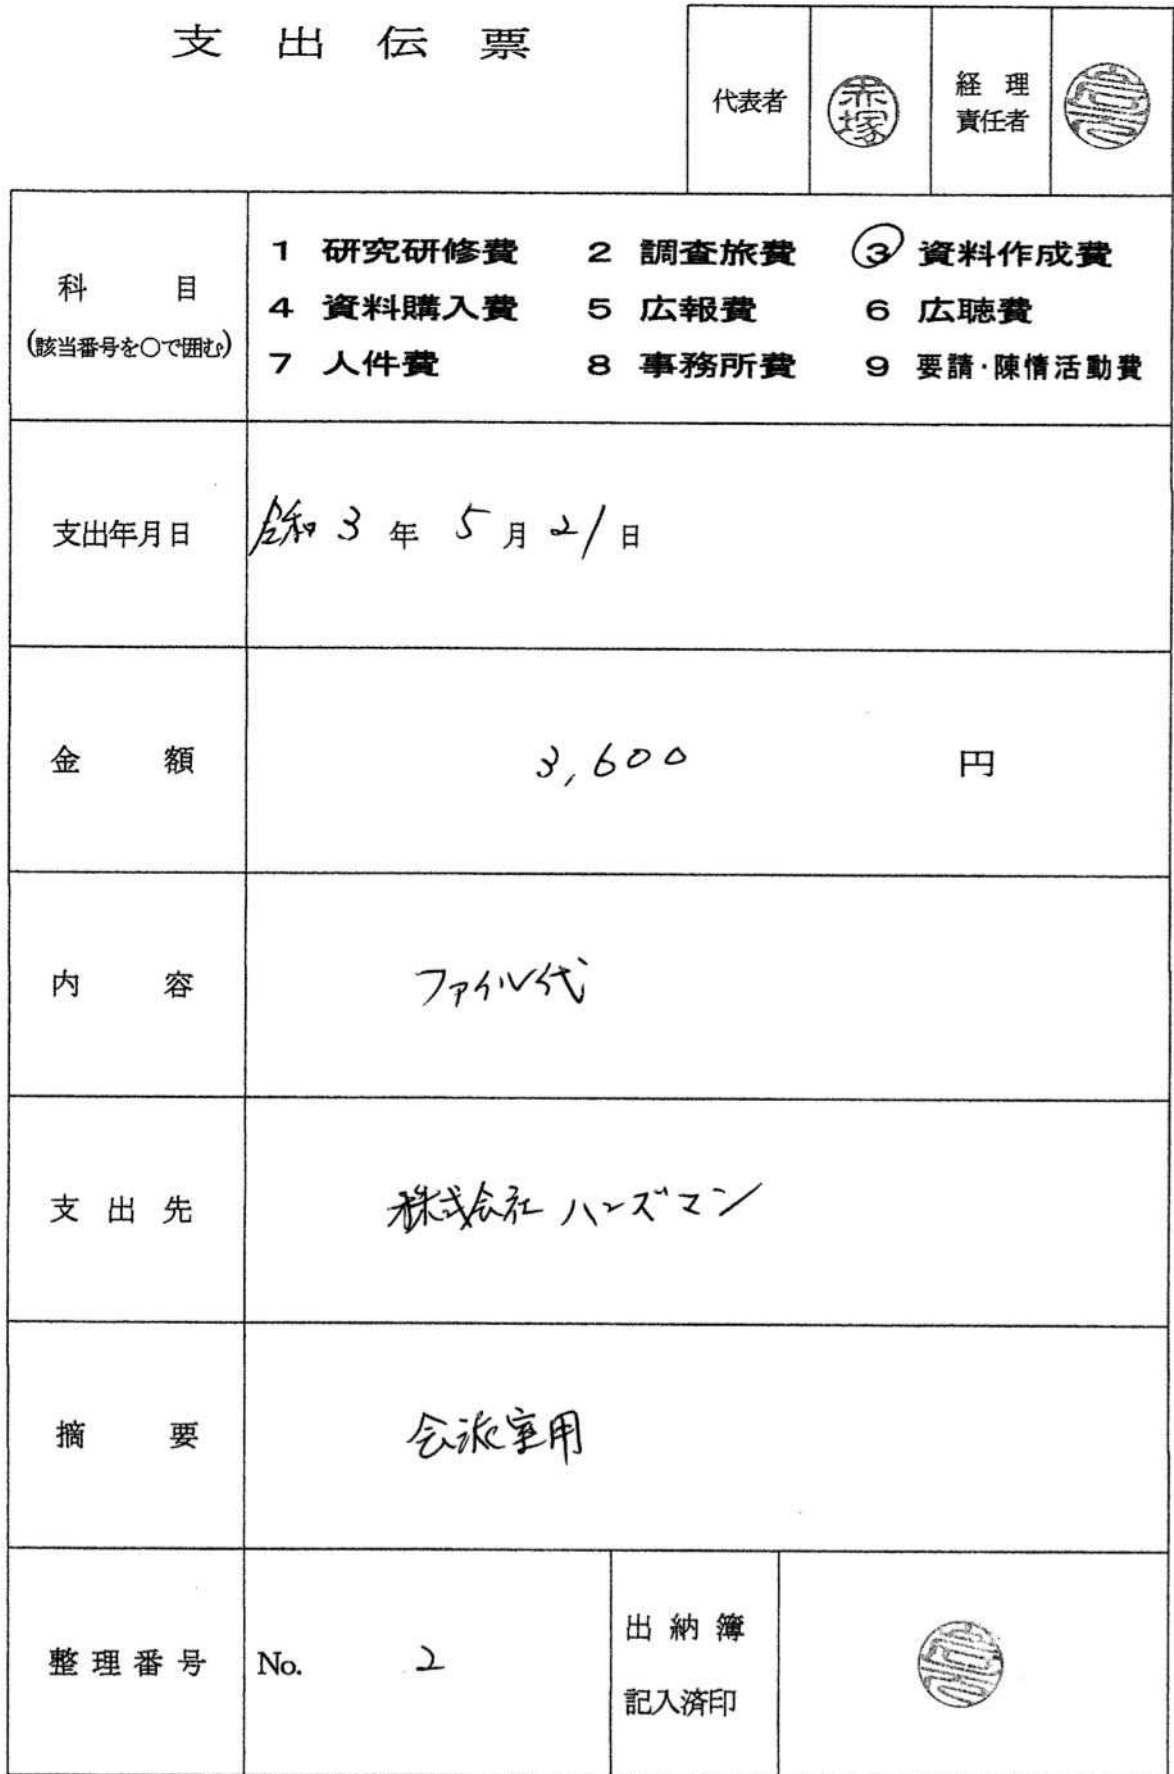 支出伝票
代表者 赤塚 経理責任者
科目 (該当番号を○で囲む)
1 研究研修費 2 調査旅費 ③ 資料作成費
4 資料購入費 5 広報費 6 広聴費
7 人件費 8 事務所費 9 要請・陳情活動費
支出年月日 令和 3 年 5 月 21 日
金額 3,600 円
内容 ファイル代
支出先 株式会社 ハンズマン
摘要 会派室用
整理番号 No. 2 出納簿記入済印